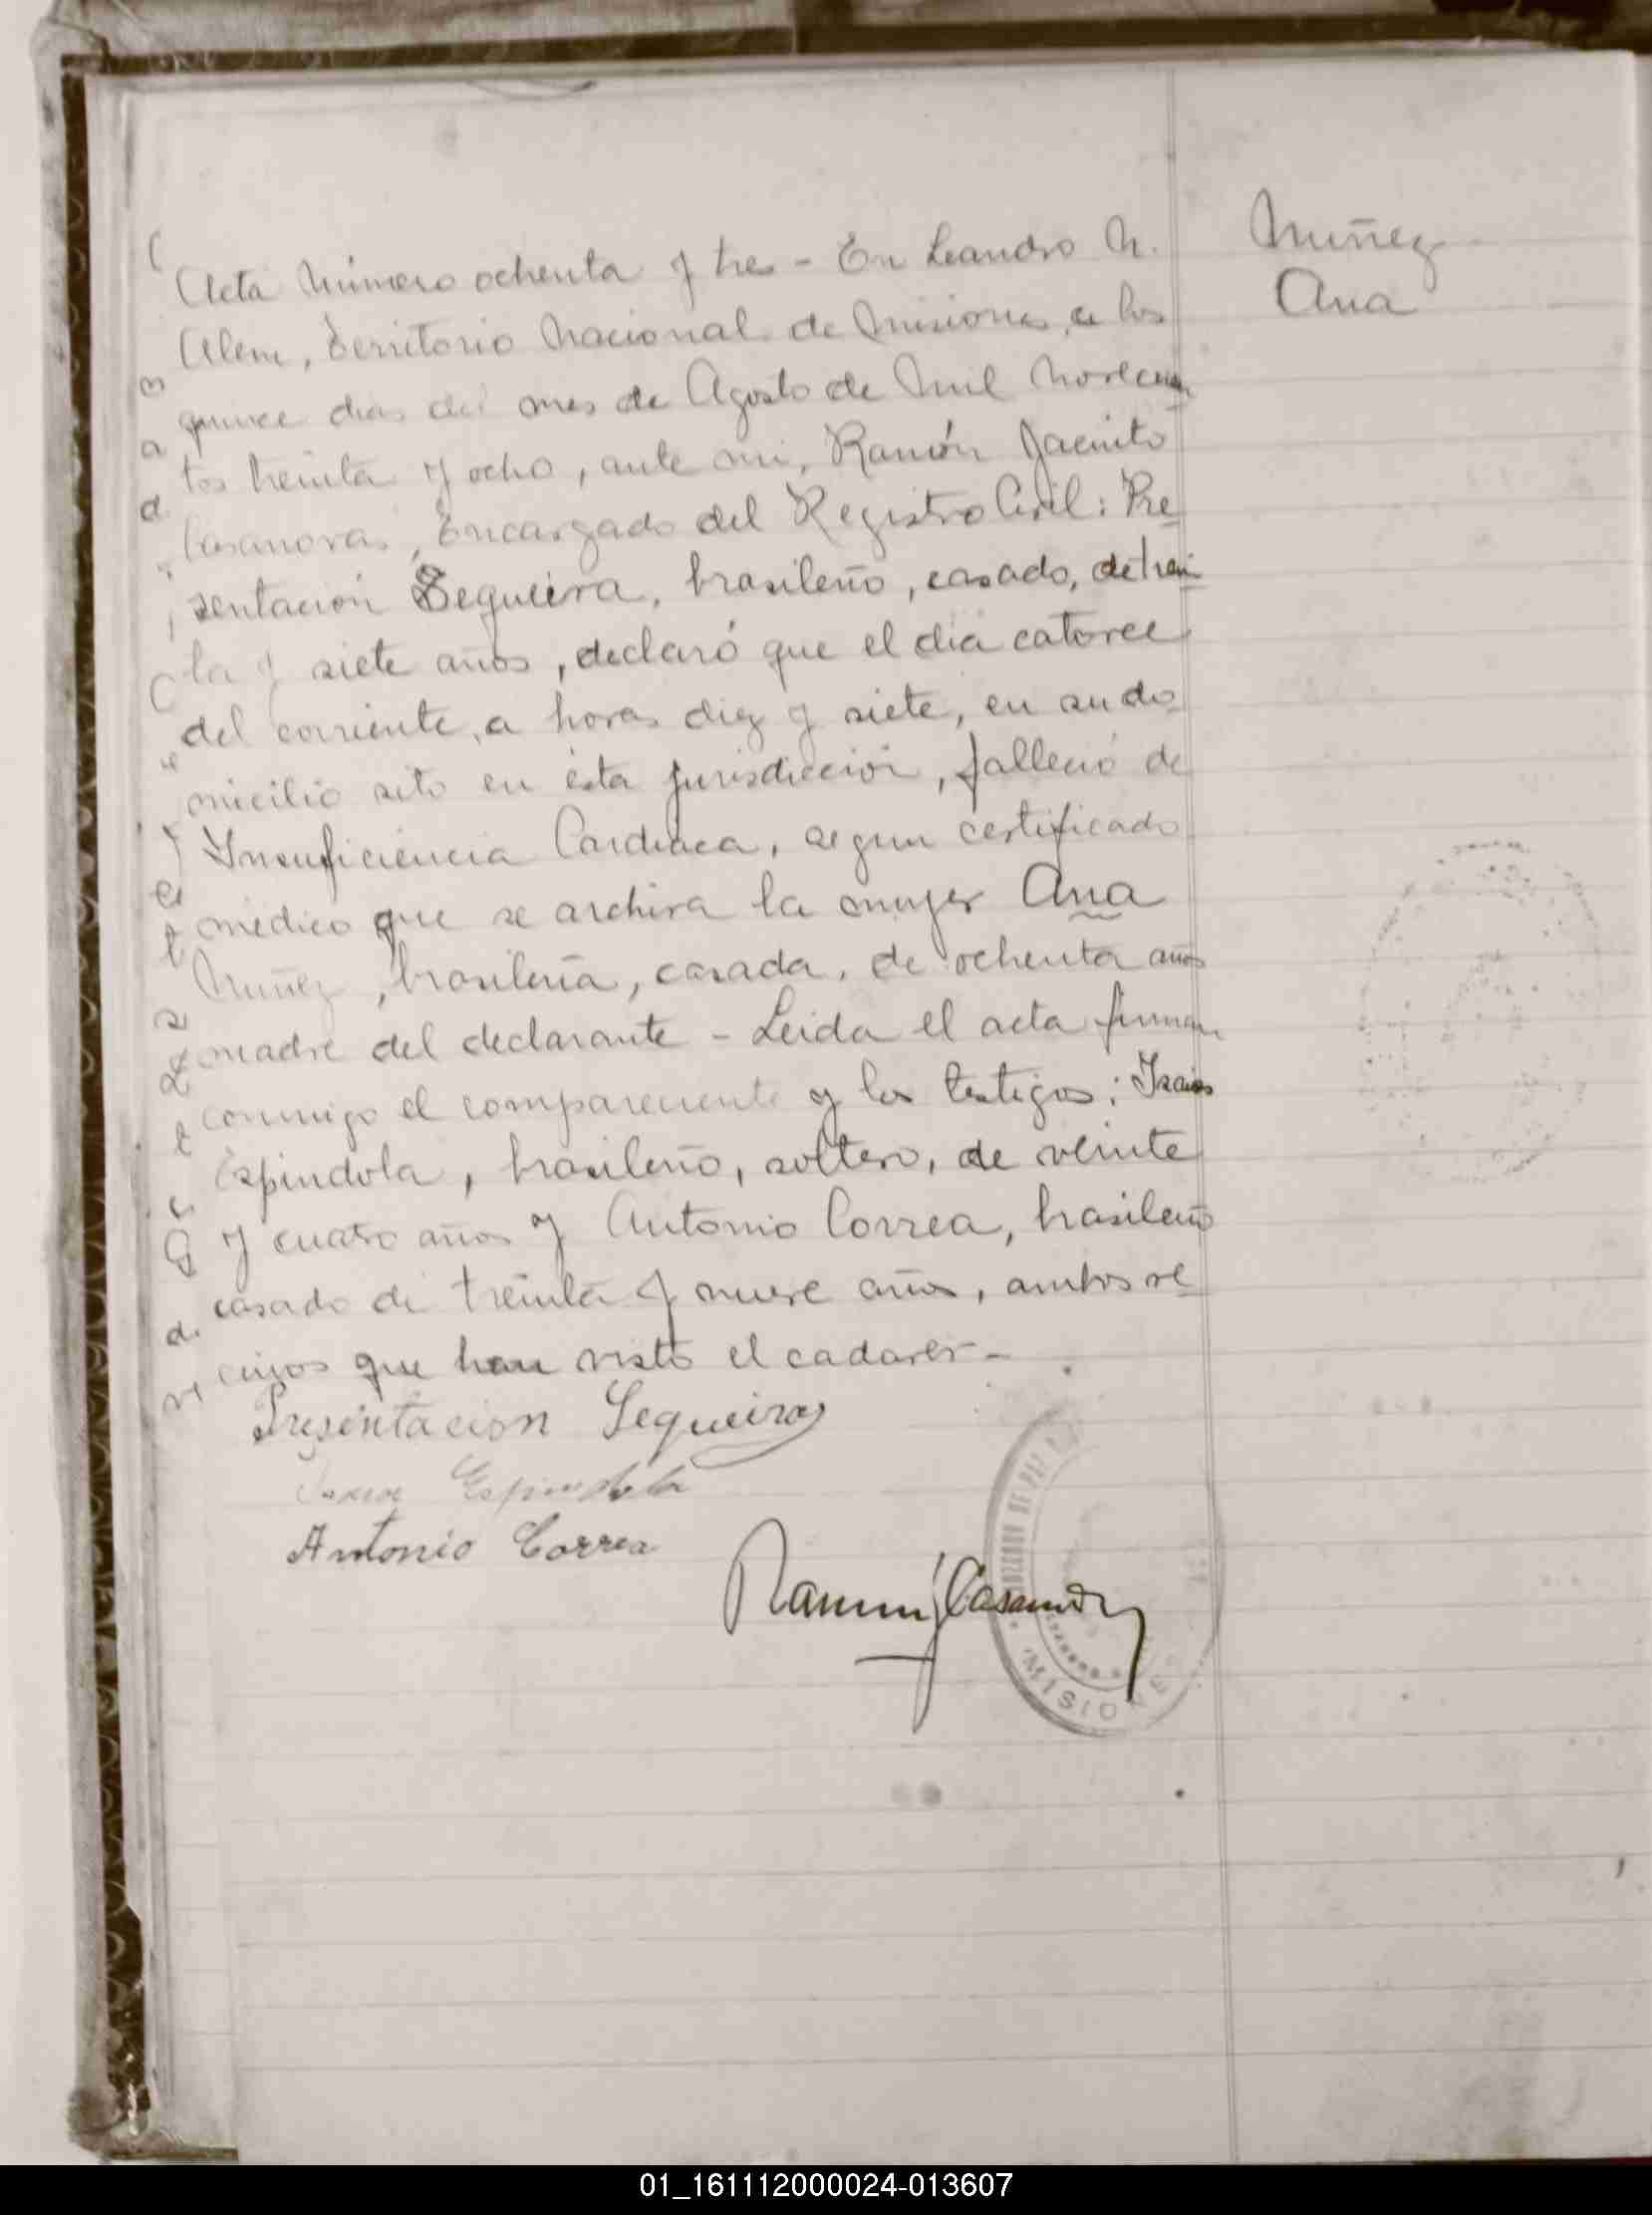 Acta Número ochenta y tres - En Leandro N.
Alem, Territorio Nacional de Misiones, a los
quince dias del mes de Agosto de Mil Novecien
tos treinta y ocho, ante mi, Ramón Jacinto
Casanovas, Encargado del Registro Civil: Pre
sentación Sequeira, brasileño, casado, de trein
ta y siete años, declaró que el dia catorce
del corriente, a horas diez y siete, en su do
micilio sito en ésta jurisdicción, falleció de
Insuficiencia Cardiaca, segun certificado
médico que se archiva la mujer Ana
Nuñez, brasileña, casada, de ochenta años
madre del declarante - Leida el acta firman
conmigo el compareciente y los testigos: Isaias
Espindola, brasileño, soltero, de veinte
y cuatro años y Antonio Correa, brasileño
casado de treinta y nueve años, ambos ve
cinos que han visto el cadaver -
Presentacion Sequeira
Espindola
Antonio Correa
Ramón J Casanovas
MISIONES
Nuñez
Ana
01_161112000024-013607